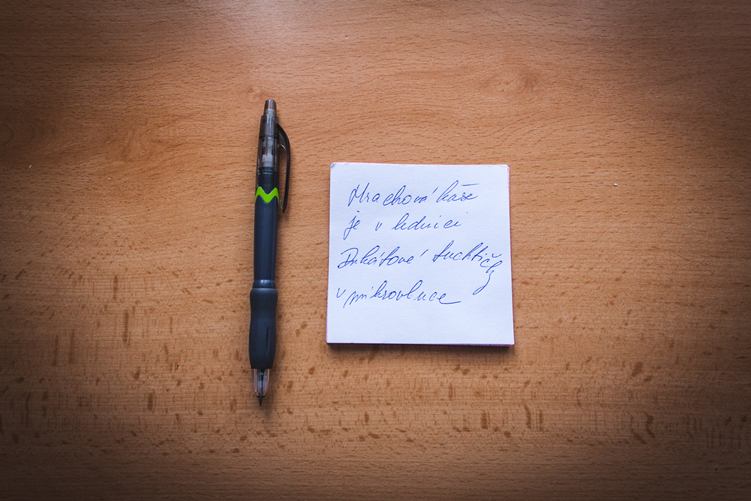 Hrachová kaše
je v lednici
Dukátové buchtičky
v mikrovlnce